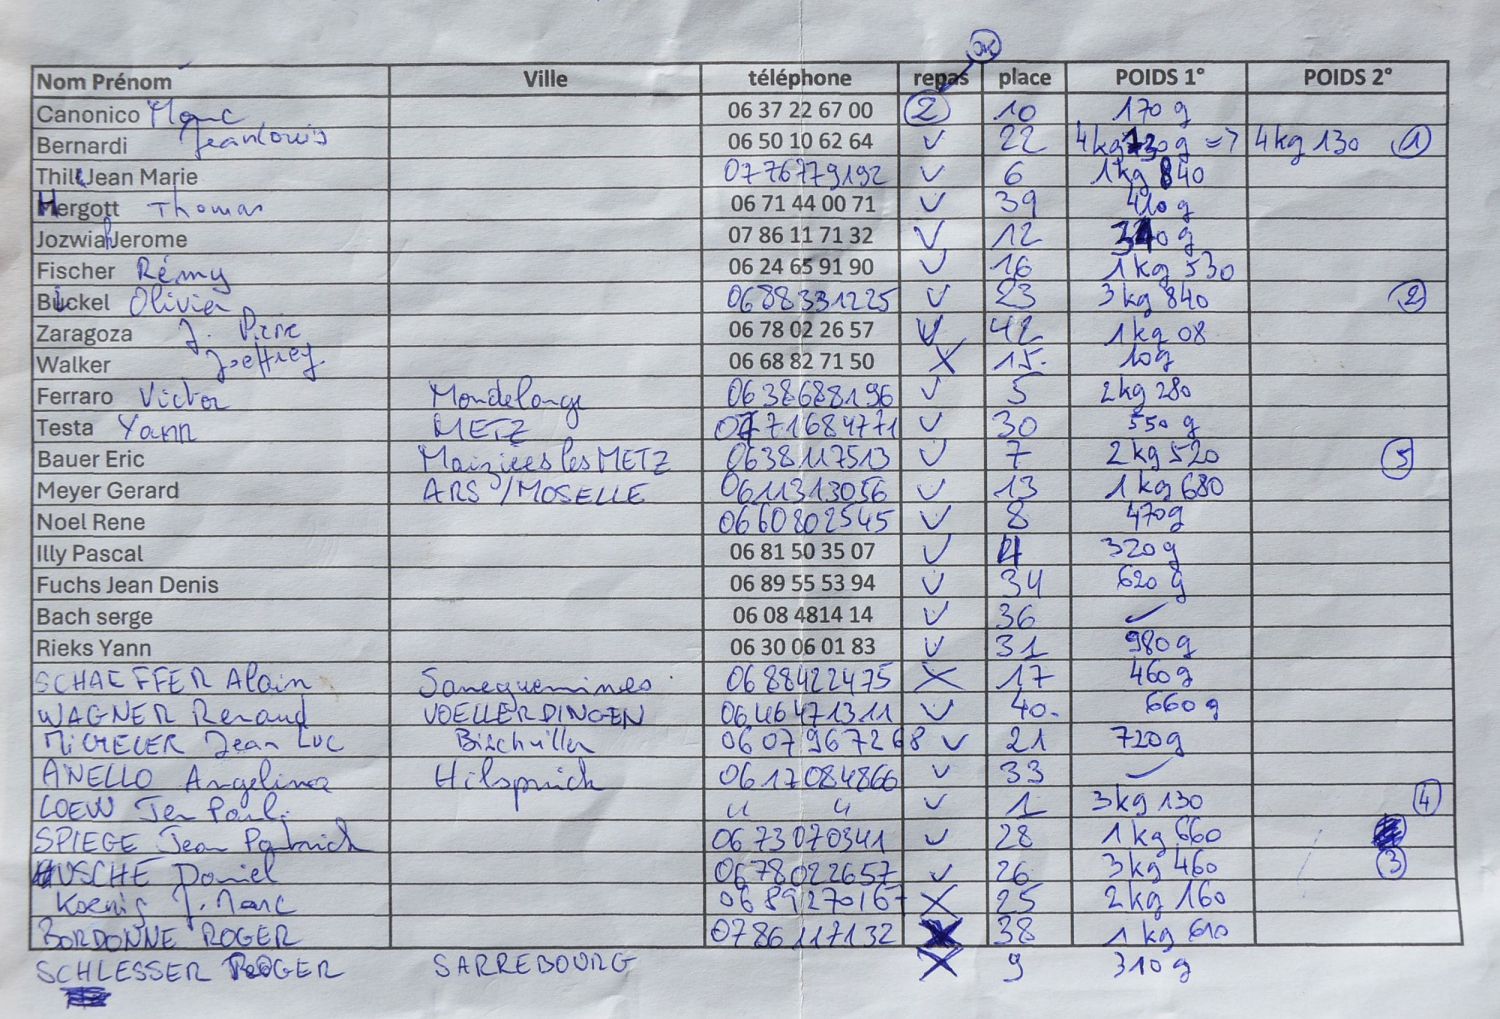 OK
Nom Prénom Ville téléphone repas place POIDS 1° POIDS 2°
Canonico Marc 06 37 22 67 00 2 10 170 g
Bernardi Jean Louis 06 50 10 62 64 ✓ 22 4kg 130 g => 4kg 130 1
Thill Jean Marie 0776779192 ✓ 6 1kg 840
Hergott Thomas 06 71 44 00 71 ✓ 39 410 g
Jozwiak Jerome 07 86 11 71 32 ✓ 12 340 g
Fischer Rémy 06 24 65 91 90 ✓ 16 1kg 530
Bickel Olivier 0688331225 ✓ 23 3kg 840 2
Zaragoza J. Pierre 06 78 02 26 57 ✓ 42 1kg 08
Walker Joeffrey 06 68 82 71 50 X 15. 10g
Ferraro Victor Mondelange 0638688196 ✓ 5 2kg 280
Testa Yann METZ 0771684771 ✓ 30 550 g
Bauer Eric Maizieres les METZ 0638117513 ✓ 7 2kg 520 5
Meyer Gerard ARS /MOSELLE 0611313056 ✓ 13 1kg 680
Noel Rene 0660802545 ✓ 8 470g
Illy Pascal 06 81 50 35 07 ✓ 4 320g
Fuchs Jean Denis 06 89 55 53 94 ✓ 34 620 g
Bach serge 06 08 4814 14 ✓ 36 ✓
Rieks Yann 06 30 06 01 83 ✓ 31 980g
SCHAEFFER Alain Sareguemines 0688422475 X 17 460g
WAGNER Renaud VOELLERDINGEN 0646471311 ✓ 40. 660 g
Jean Luc 0607967268 ✓ 21 720g
ANELLO Angelina Hilsprich 0617084866 ✓ 33 ✓
LOEW Jen Paul. " " ✓ 1 3kg 130 4
SPIEGE Jean Patrick 0673070341 ✓ 28 1kg 660
HUSCHE Daniel 0678022657 ✓ 26 3kg 460 3
Koenig J. Marc 0689270167 X 25 2kg 160
BORDONNE ROGER 0786117132 X 38 1kg 610
SCHLESSER ROGER SARREBOURG X 9 310g